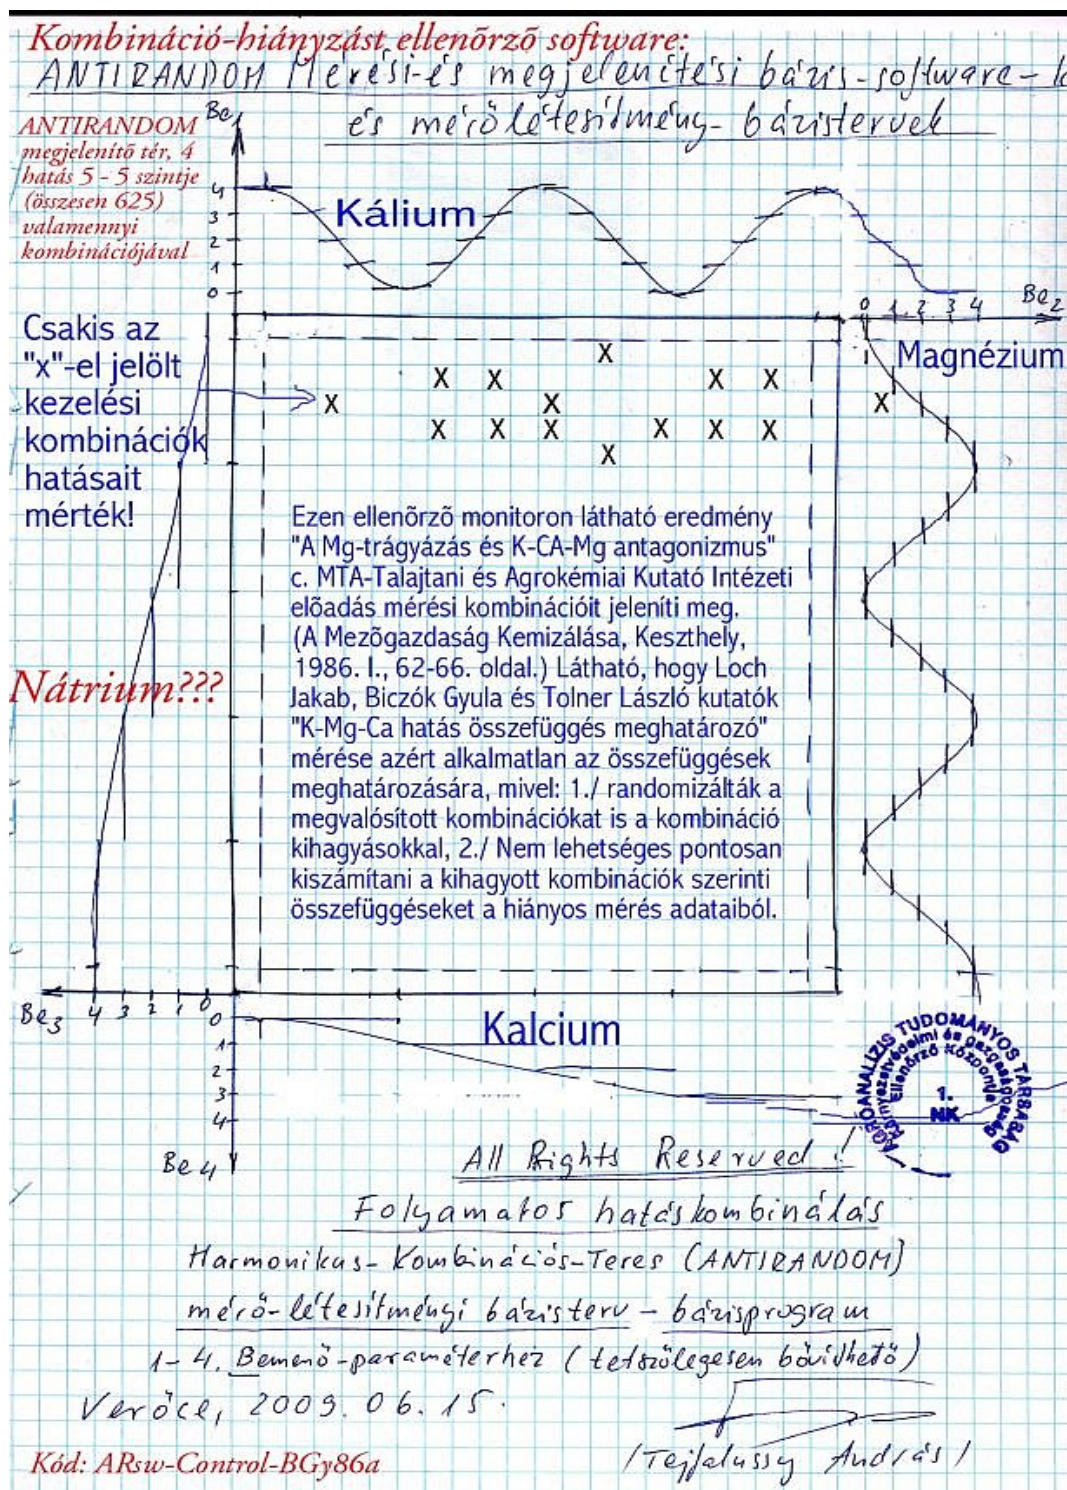 Kombináció-hiányzást ellenõrzõ software:
ANTIRANDOM Mérési-és megjelenítési bázis-software-
és mérőlétesítmény-bázistervek
ANTIRANDOM
megjelenítõ tér, 4
hatás 5 - 5 szintje
(összesen 625)
valamennyi
kombinációjával
Be1
4
3
2
1
0
Kálium
0 1 2 3 4 Be2
Magnézium
Csakis az
"x"-el jelölt
kezelési
kombinációk
hatásait
mérték!
X
X X X X
X X X
X X X X X X
X
Ezen ellenõrzõ monitoron látható eredmény
"A Mg-trágyázás és K-CA-Mg antagonizmus"
c. MTA-Talajtani és Agrokémiai Kutató Intézeti
elõadás mérési kombinációit jeleníti meg.
(A Mezõgazdaság Kemizálása, Keszthely,
1986. I., 62-66. oldal.) Látható, hogy Loch
Jakab, Biczók Gyula és Tolner László kutatók
"K-Mg-Ca hatás összefüggés meghatározó"
mérése azért alkalmatlan az összefüggések
meghatározására, mivel: 1./ randomizálták a
megvalósított kombinációkat is a kombináció
kihagyásokkal, 2./ Nem lehetséges pontosan
kiszámítani a kihagyott kombinációk szerinti
összefüggéseket a hiányos mérés adataiból.
Nátrium???
Be3 4 3 2 1 0
0
1
2
3
4
Be4
Kalcium
AGROANALÍZIS TUDOMÁNYOS TÁRSASÁG
Környezetvédelmi és gazdaságosság
Ellenőrző Központja
1.
NK
All Rights Reserved!
Folyamatos hatáskombinálás
Harmonikus-Kombinációs-Teres (ANTIRANDOM)
mérő-létesítményi bázisterv - bázisprogram
1-4. Bemenő-paraméterhez (tetszőlegesen bővíthető)
Verőce, 2009. 06. 15.
/Tejfalussy András/
Kód: ARsw-Control-BGy86a